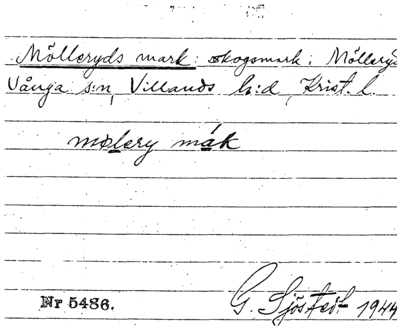 Mölleryds mark: skogsmark i Mölleryd
Vånga s:n, Villands h:d, Krist. l.
mølery mák
Nr 5486.
G. Sjöstedt 1944